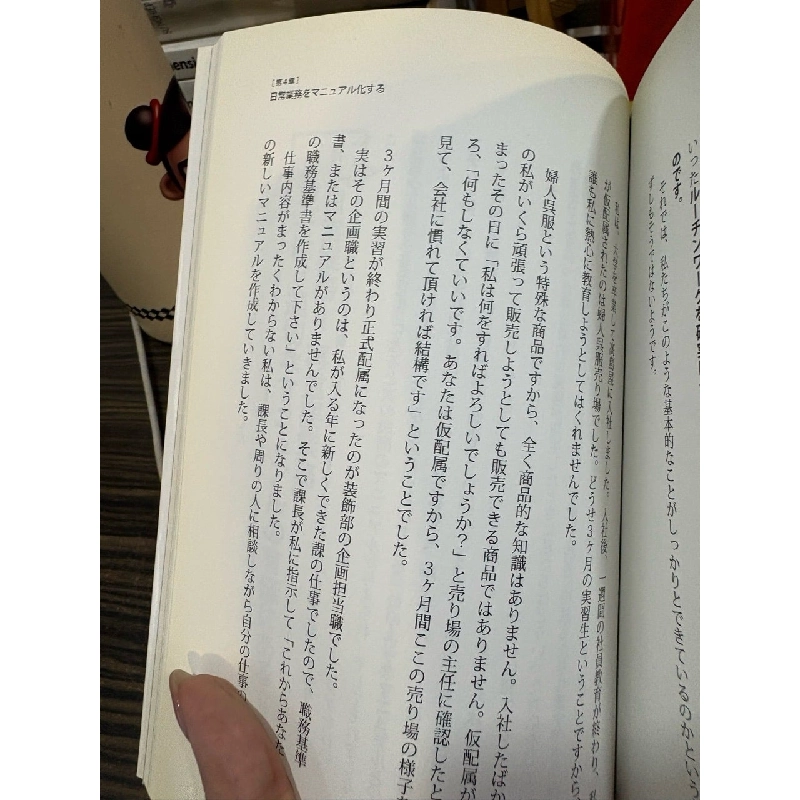 いったルーチンワークを
のです。
それでは、私たちがこのような基本的なことがしっかりとできているのかという
ずしもそうではないようです。
[第4章]
日常業務をマニュアル化する
大学を卒業して高島屋に入社しました。入社後、一週間の社員教育が終わり、私
が仮配属されたのは婦人呉服売り場でした。どうせ3ヶ月の実習生ということですから、
誰も私に熱心に教育しようとしてはくれませんでした。
婦人呉服という特殊な商品ですから、全く商品的な知識はありません。入社したばか
の私がいくら頑張って販売しようとしても販売できる商品ではありません。
まったその日に「私は何をすればよろしいでしょうか?」と売り場の主任に確認したと
ろ、「何もしなくていいです。あなたは仮配属ですから、3ヶ月間ここの売り場の様子を
見て、会社に慣れて頂ければ結構です」ということでした。
3ヶ月間の実習が終わり正式配属になったのが装飾部の企画担当職でした。
実はその企画職というのは、私が入る年に新しくできた課の仕事でしたので、職務基準
書、またはマニュアルがありませんでした。そこで課長が私に指示して「これからあなた
の職務基準書を作成して下さい」ということになりました。
仕事内容がまったくわからない私は、課長や周りの人に相談しながら自分の仕事
の新しいマニュアルを作成していきました。